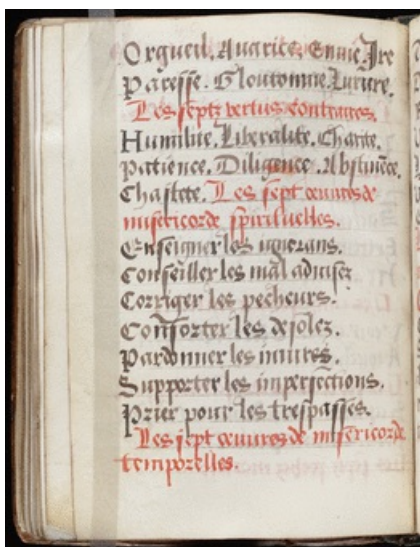 Orgueil. Auarice. Enuie. Ire
Paresse. Gloutonnie. Luxure.
Les septz vertus contraires.
Humilite. Liberalite. Charite.
Patience. Diligence. Abstinẽce.
Chastete. Les sept œuures de
misericorde spirituelles.
Enseigner les ignorans.
Conseiller les mal aduisez
Corriger les pecheurs.
Conforter les desolez.
Pardonner les iniures.
Supporter les imperfections.
Prier pour les trespasses.
Les sept œuures de misericorde
temporelles.